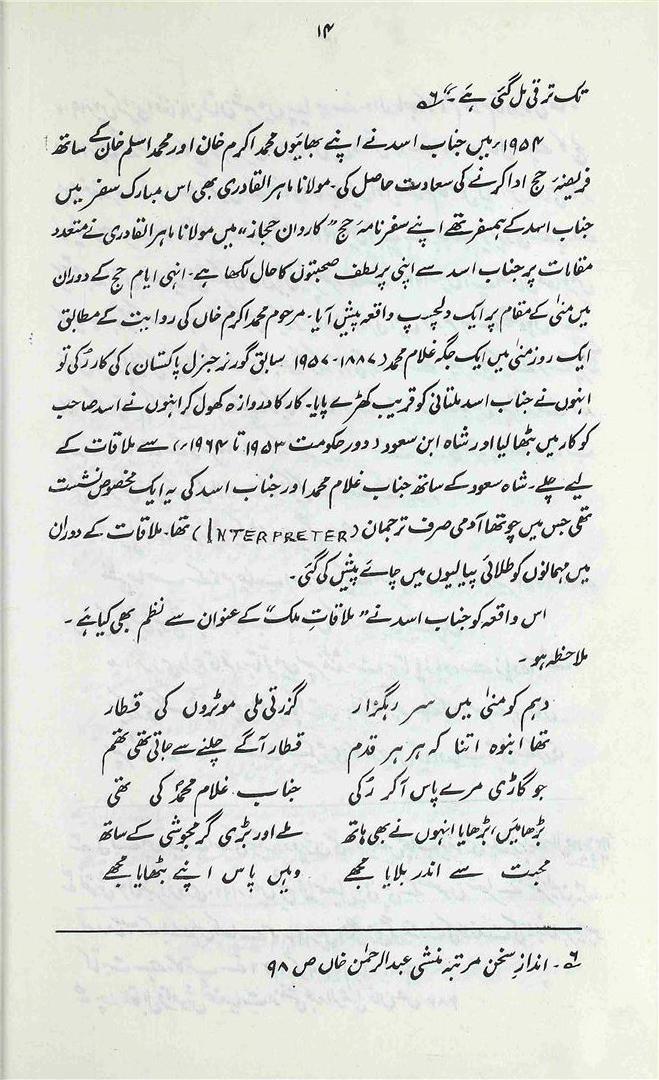 ۱۴
تک ترقی مل گئی ہے ۔‘‘ ۶؎
۱۹۵۴ء میں جناب اسد نے اپنے بھائیوں محمد اکرم خان اور محمد اسلم خان کے ساتھ
فریضۂ حج ادا کرنے کی سعادت حاصل کی۔ مولانا ماہر القادری بھی اس مبارک سفر میں
جناب اسد کے ہمسفر تھے اپنے سفرنامۂ حج ’’کاروان حجاز‘‘ میں مولانا ماہر القادری نے متعدد
مقامات پر جناب اسد سے اپنی پر لطف صحبتوں کا حال لکھا ہے۔ انہی ایام حج کے دوران
میں منیٰ کے مقام پر ایک دلچسپ واقعہ پیش آیا۔ مرحوم محمد اکرم خاں کی روایت کے مطابق
ایک روز منیٰ میں ایک جگہ غلام محمد (۱۸۸۷-۱۹۵۷ سابق گورنر جنرل پاکستان) کی کار رکی تو
انہوں نے جناب اسد ملتانی کو قریب کھڑے پایا۔ کار کا دروازہ کھول کر انہوں نے اسد صاحب
کو کار میں بٹھا لیا اور شاہ ابن سعود (دور حکومت ۱۹۵۳ تا ۱۹۶۴ء) سے ملاقات کے
لیے چلے۔ شاہ سعود کے ساتھ جناب غلام محمد اور جناب اسد کی یہ ایک مخصوص نشست
تھی جس میں چوتھا آدمی صرف ترجمان (INTERPRETER) تھا۔ ملاقات کے دوران
میں مہمانوں کو طلائی پیالیوں میں چائے پیش کی گئی۔
اس واقعہ کو جناب اسد نے ’’ملاقاتِ ملک‘‘ کے عنوان سے نظم بھی کیا ہے ۔
ملاحظہ ہو ۔
دہم کو منیٰ میں سرِ رہگزار گزرتی ملی موٹروں کی قطار
تھا انبوہ اتنا کہ ہر ہر قدم قطار آگے چلنے سے جاتی تھی تھم
جو گاڑی مرے پاس آکر رکی جناب غلام محمدؐ کی تھی
بڑھا میں، بڑھایا انہوں نے بھی ہاتھ ملے اور بڑی گرمجوشی کے ساتھ
محبت سے اندر بلایا مجھے وہیں پاس اپنے بٹھایا مجھے
۶؎ ۔ اندازِ سخن مرتبہ منشی عبدالرحمٰن خاں ص ۹۸